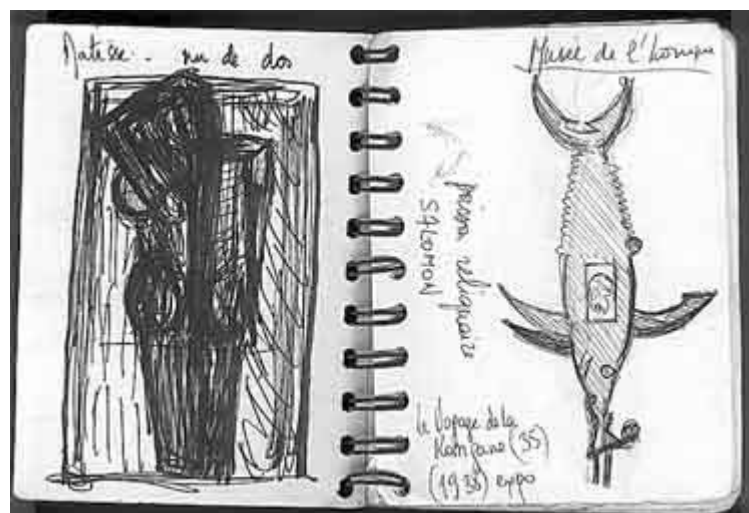 Matisse - nu de dos
Musée de l'homme
poisson reliquaire
SALOMON
le Voyage de la
Korrigane (35)
(1938) expo